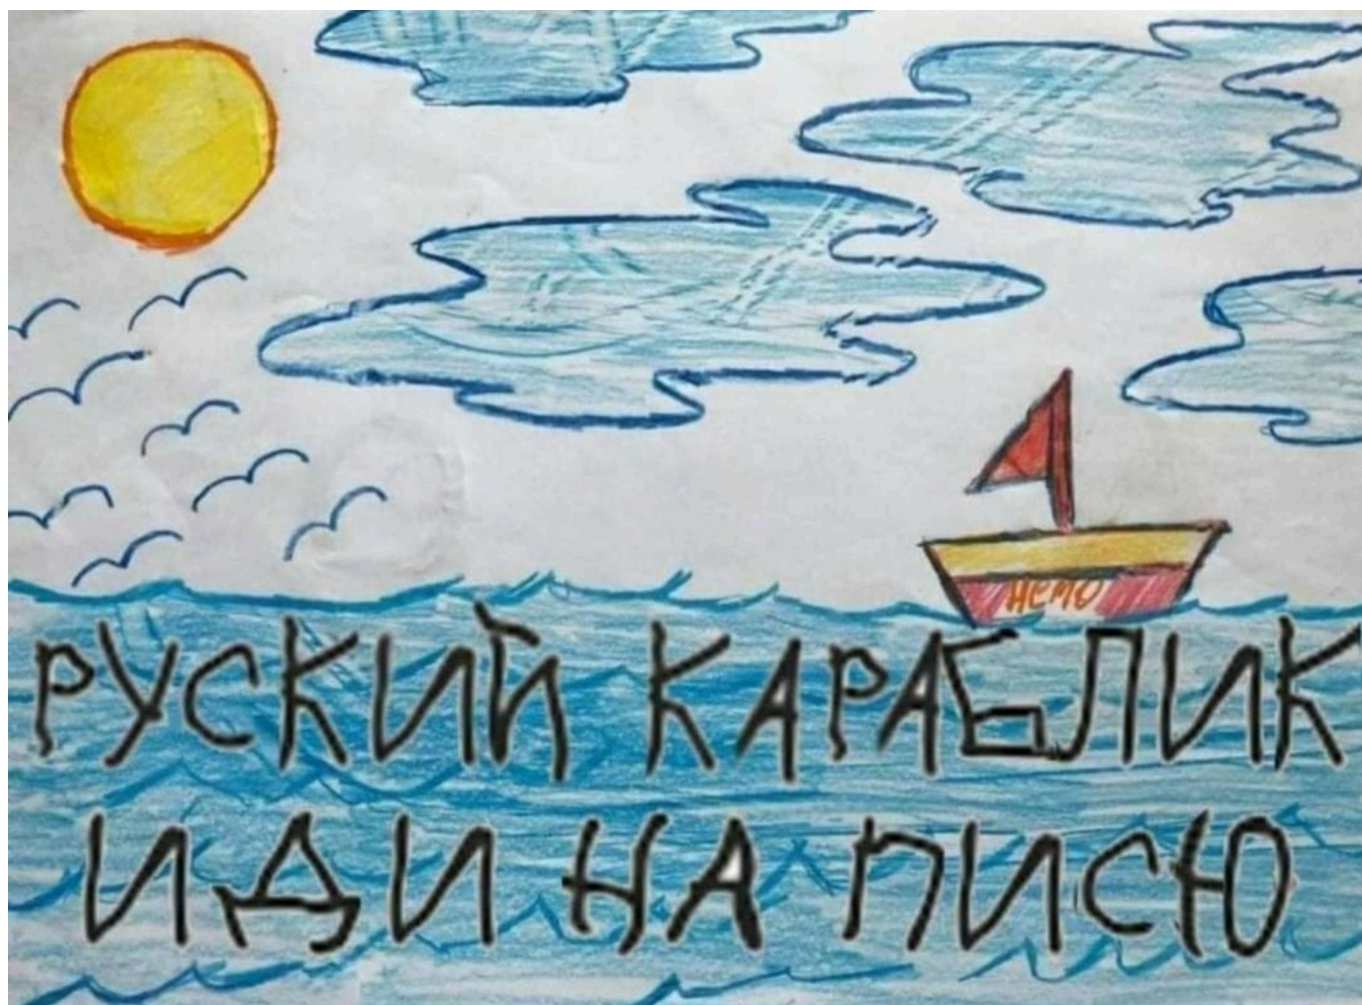 немо
РУСКИЙ КАРАБЛИК
ИДИ НА ПИСЮ